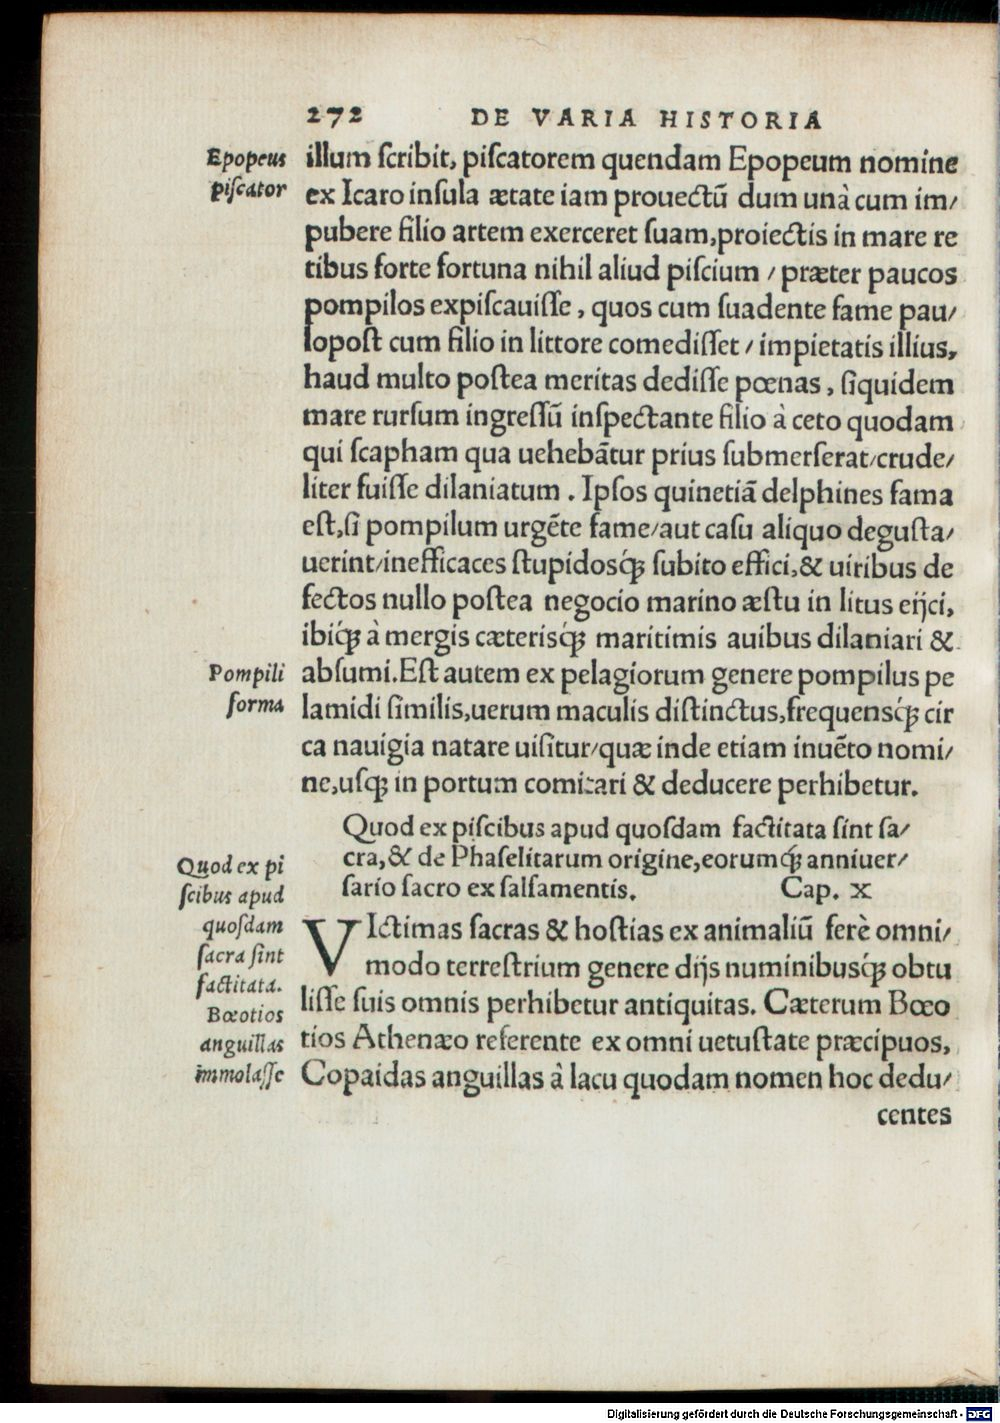 272 DE VARIA HISTORIA
Epopeus
piſcator
illum ſcribit, piſcatorem quendam Epopeum nomine
ex Icaro inſula ætate iam prouectū dum unà cum im/
pubere filio artem exerceret ſuam,proiectis in mare re
tibus forte fortuna nihil aliud piſcium / præter paucos
pompilos expiſcauiſſe, quos cum ſuadente fame pau/
lopoſt cum filio in littore comediſſet / impietatis illius,
haud multo poſtea meritas dediſſe pœnas, ſiquidem
mare rurſum ingreſſū inſpectante filio à ceto quodam
qui ſcapham qua uehebātur prius ſubmerſerat/crude/
liter fuiſſe dilaniatum. Ipſos quinetiā delphines fama
eſt,ſi pompilum urgēte fame/aut caſu aliquo deguſta/
uerint/inefficaces ſtupidosq́ꝫ ſubito effici,& uiribus de
fectos nullo poſtea negocio marino æſtu in litus eijci,
ibiq́ꝫ à mergis cæterisq́ꝫ maritimis auibus dilaniari &
Pompili
forma
abſumi.Eſt autem ex pelagiorum genere pompilus pe
lamidi ſimilis,uerum maculis diſtinctus,frequensq́ꝫ cir
ca nauigia natare uiſitur/quæ inde etiam inuēto nomi/
ne,uſqꝫ in portum comitari & deducere perhibetur.
Quod ex piſcibus apud quoſdam factitata ſint ſa/
cra,& de Phaſelitarum origine,eorumq́ꝫ anniuer/
ſario ſacro ex ſalſamentis. Cap. X
Quod ex pi
ſcibus apud
quoſdam
ſacra ſint
factitata.
Bœotios
anguillas
immolaſſe
VIctimas ſacras & hoſtias ex animaliū ferè omni/
modo terreſtrium genere dijs numinibusq́ꝫ obtu
liſſe ſuis omnis perhibetur antiquitas. Cæterum Bœo
tios Athenæo referente ex omni uetuſtate præcipuos,
Copaidas anguillas à lacu quodam nomen hoc dedu/
centes
Digitalisierung gefördert durch die Deutsche Forschungsgemeinschaft - DFG